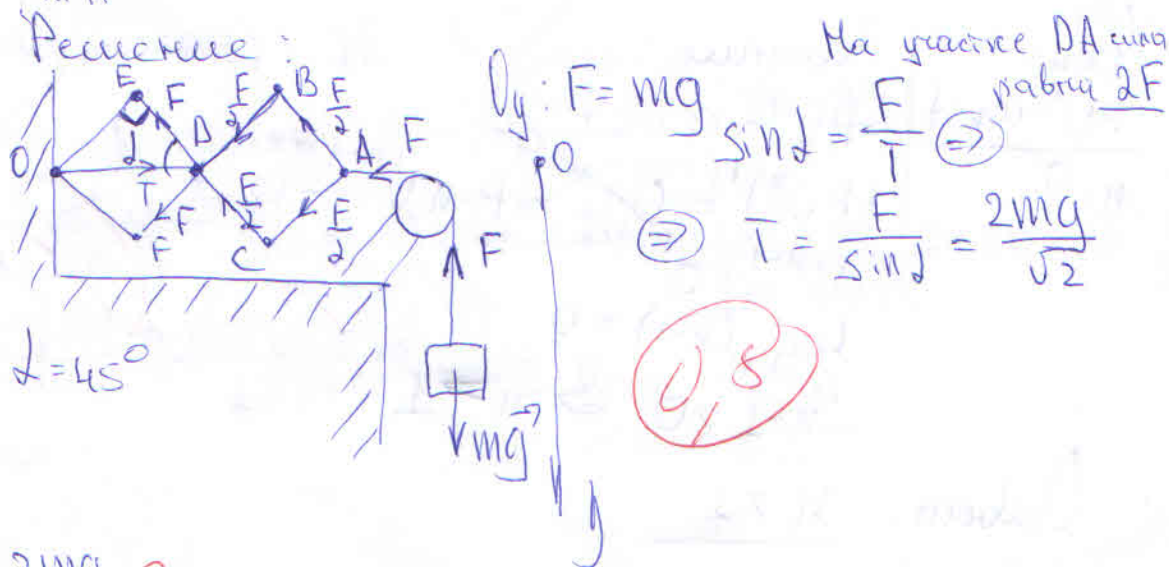 Решение:
E F F/2 B F/2
D A F
O α T
F F/2 F/2 F
F C
α = 45°
mg
Oy: F = mg
O
y
На участке DA сила
равна 2F
sin α = F/T ⇒
⇒ T = F/sin α = 2mg/√2
0,8
2mg